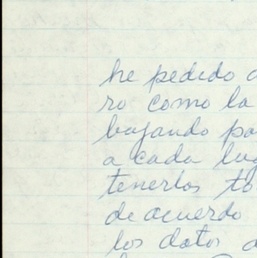 he pedido
ro como la
bajando po
a cada lug
tenerlos to
de acuerdo
los datos